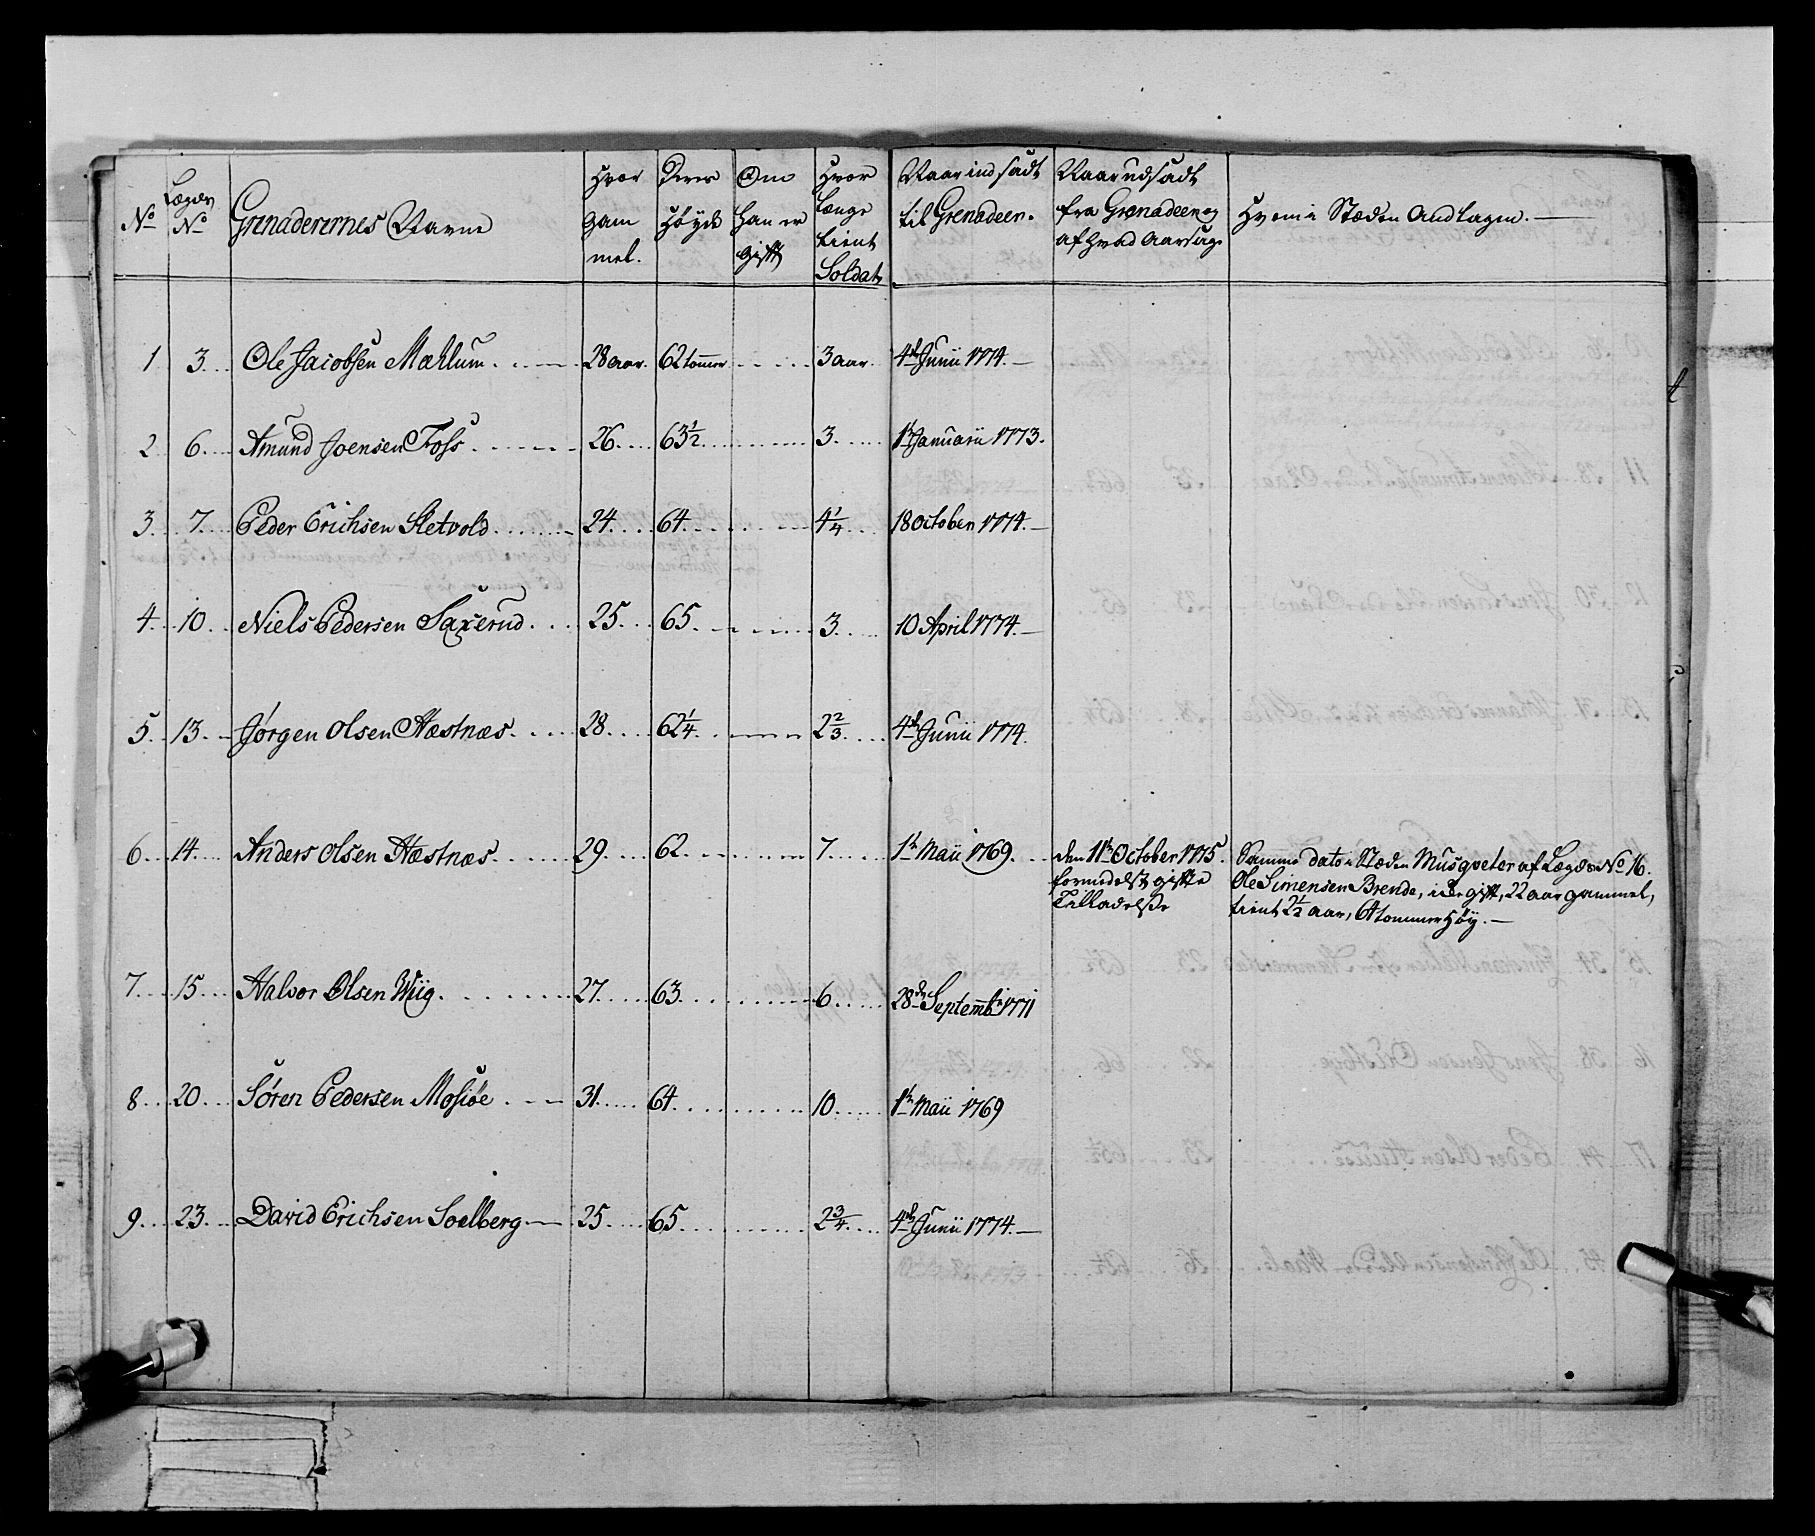 No Lægds No Grenaderernes Navne Hvor gam mel. Deres Høyde Om han er gift Hvor længe tient Soldat Naar indsadt til Grenadeer. Naar udsadt fra Grenadeer og af hvad Aarsag. Hvem i Stæden Andtagen.
1 3. Ole Jacobsen Mæhlum 28 aar. 62 tomer 3 aar. 4de Junii 1774.
2 6. Amund Joensen Foss 26. 63 1/2 3. 1te Januarii 1773.
3 7. Peder Erichsen Sletvold 24. 64. 4 1/4 18 October 1774.
4. 10. Niels Pedersen Saxerud 25. 65. 3. 10 April 1774.
5. 13. Jørgen Olsen Hæstnæs 28. 62 1/4 2 2/3 4de Junii 1774.
6. 14. Anders Olsen Hæstnæs 29. 62. 7. 1te Maii 1769. den 11te October 1775. Samme dato i Stæden Musqveter af Lægds No 16.
formedelst gifte Ole Simensen Brende, icke gift, 22 aar gammel,
Tilladelse tient 2 1/2 aar, 64 tommer Høy.
7. 15. Halvor Olsen Wiig 27. 63. 6. 28de Septembr 1771
8. 20. Sören Pedersen Mosiöe 31. 64. 10. 1te Maii 1769
9. 23. David Erichsen Soelberg 25. 65. 2 3/4 4de Junii 1774.